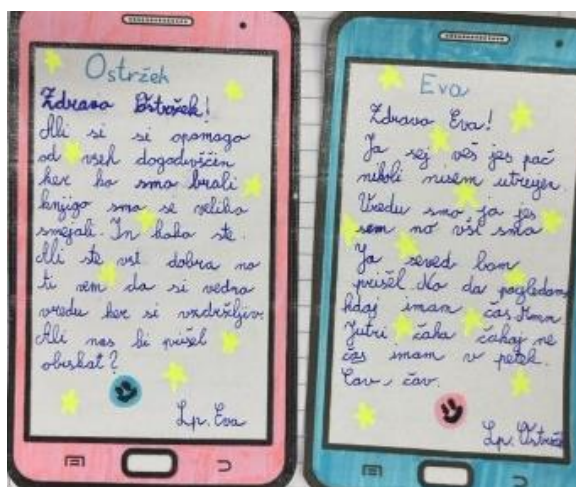 Ostržek
Zdravo Ostržek!
Ali si si opomogo
od vseh dogodivščin
ker ko smo brali
knjigo smo se veliko
smejali. In kako ste.
Ali ste vsi dobro no
ti vem da si vedno
vredu ker si vzdržljiv.
Ali nas bi prišel
obiskat?
Lp. Eva
Eva
Zdravo Eva!
Ja sej veš jes pač
nikoli nisem utrujen.
Vredu smo ja jes
sem no vsi smo
Ja seved bom
prišel. No da pogledam
kdaj imam čas. Hmm.
Jutri čaka čakaj ne
čas imam v petek.
Čav čav.
Lp. Ostržek